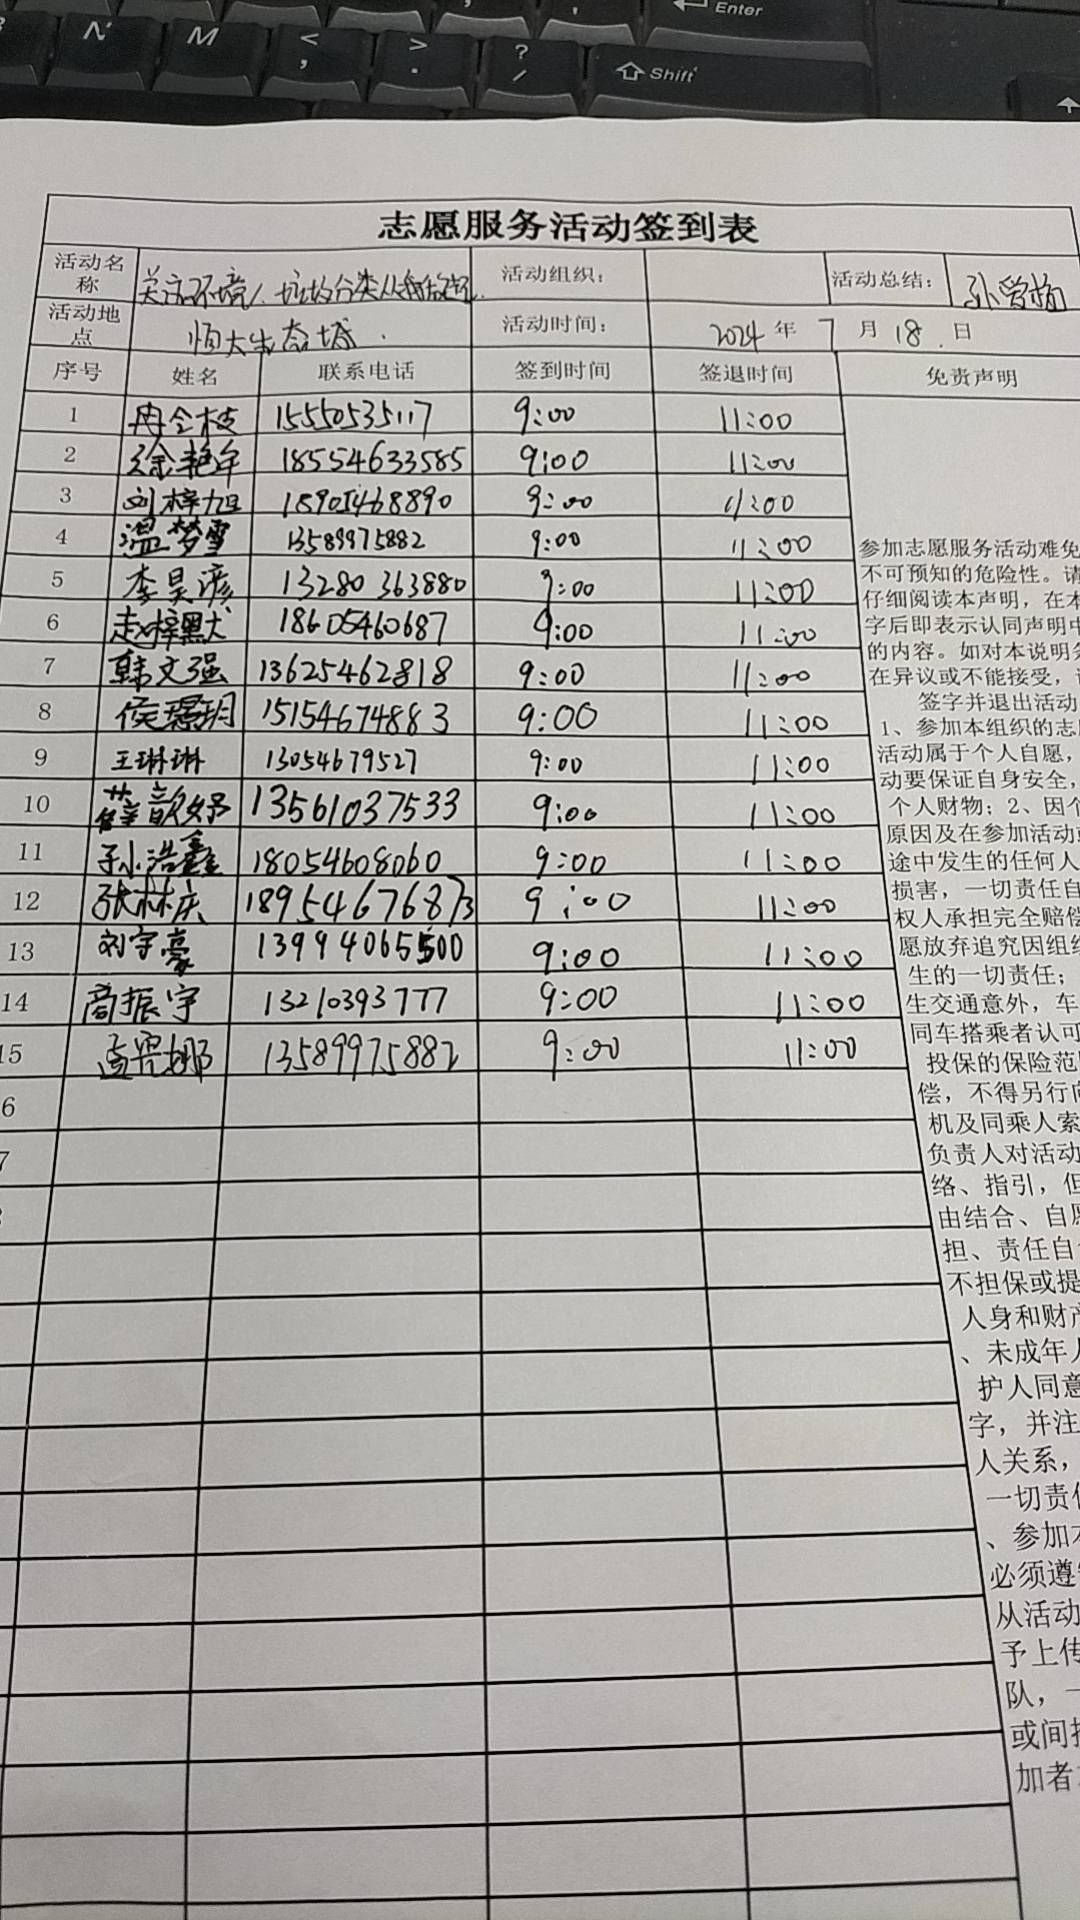 Enter
N M < , > . ? / Shift
志愿服务活动签到表
活动名称 关注环境,垃圾分类从 活动组织: 活动总结: 孙
活动地点 恒大生态城. 活动时间: 2024 年 7 月 18 日
序号 姓名 联系电话 签到时间 签退时间 免责声明
1 冉令枝 15550535117 9:00 11:00
2 徐艳华 18554633585 9:00 11:00
3 刘梓旭 15905468890 9:00 11:00
4 温梦雪 13589975882 9:00 11:00
5 李昊彦 13280363880 9:00 11:00
6 赵梓默 18605460687 9:00 11:00
7 韩文强 13625462818 9:00 11:00
8 侯璟玥 15154674883 9:00 11:00
9 王琳琳 13054679527 9:00 11:00
10 薛歆妤 13561037533 9:00 11:00
11 孙浩鑫 18054608060 9:00 11:00
12 张林庆 18954676873 9:00 11:00
13 刘宇豪 13994065500 9:00 11:00
14 商振宇 13210393777 9:00 11:00
15 13589975882 9:00 11:00
6
7
参加志愿服务活动难免
不可预知的危险性。请
仔细阅读本声明,在本
字后即表示认同声明中
的内容。如对本说明
在异议或不能接受,
签字并退出活动
1、参加本组织的志
活动属于个人自愿,
动要保证自身安全,
个人财物;2、因个
原因及在参加活动
途中发生的任何人
损害,一切责任自
权人承担完全赔偿
愿放弃追究因组织
生的一切责任;
生交通意外,车
同车搭乘者认可
投保的保险范
偿,不得另行向
机及同乘人索
负责人对活动
络、指引,但
由结合、自愿
担、责任自
不担保或提
人身和财产
、未成年人
护人同意
字,并注
人关系,
一切责任
、参加本
必须遵
从活动
予上传
队,一
或间接
加者